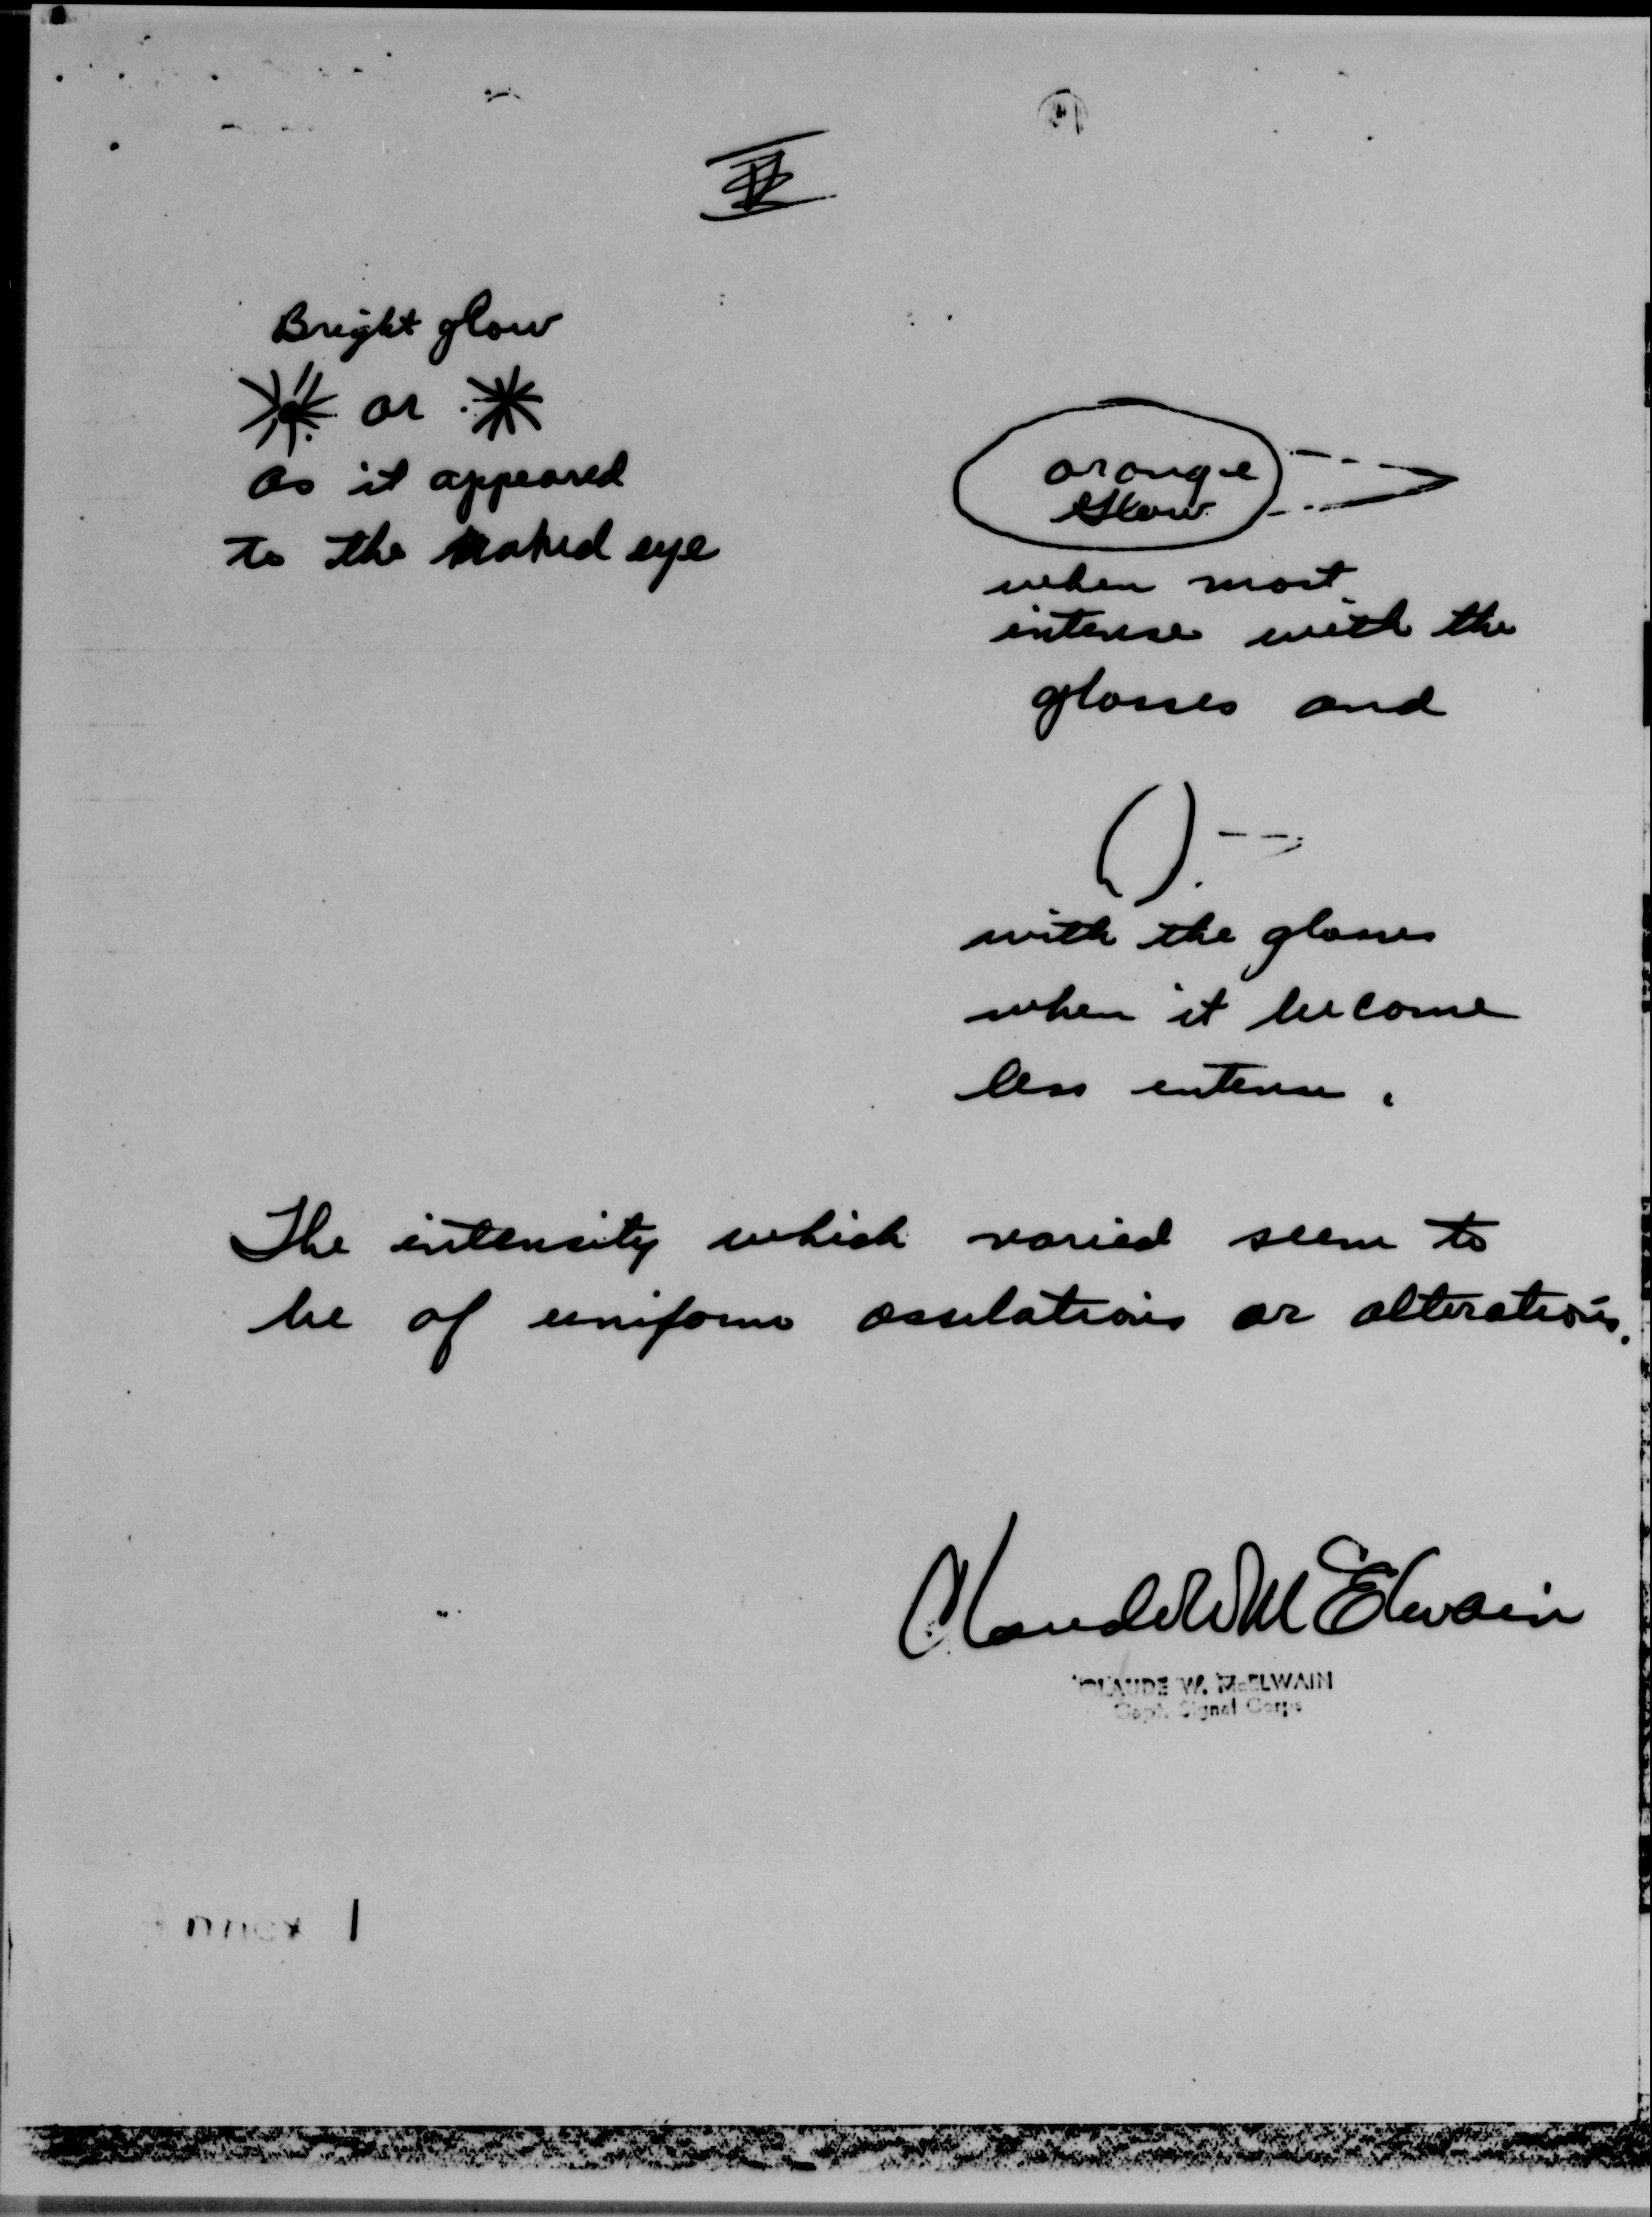 Bright glow
or
as it appeared
to the naked eye
orange
Glow
when most
intense with the
glasses and
with the glasses
when it become
less intense.
The intensity which varied seem to
be of uniform ossulations or alterations.
Claude W McElwain
CLAUDE W. McELWAIN
Capt. Signal Corps